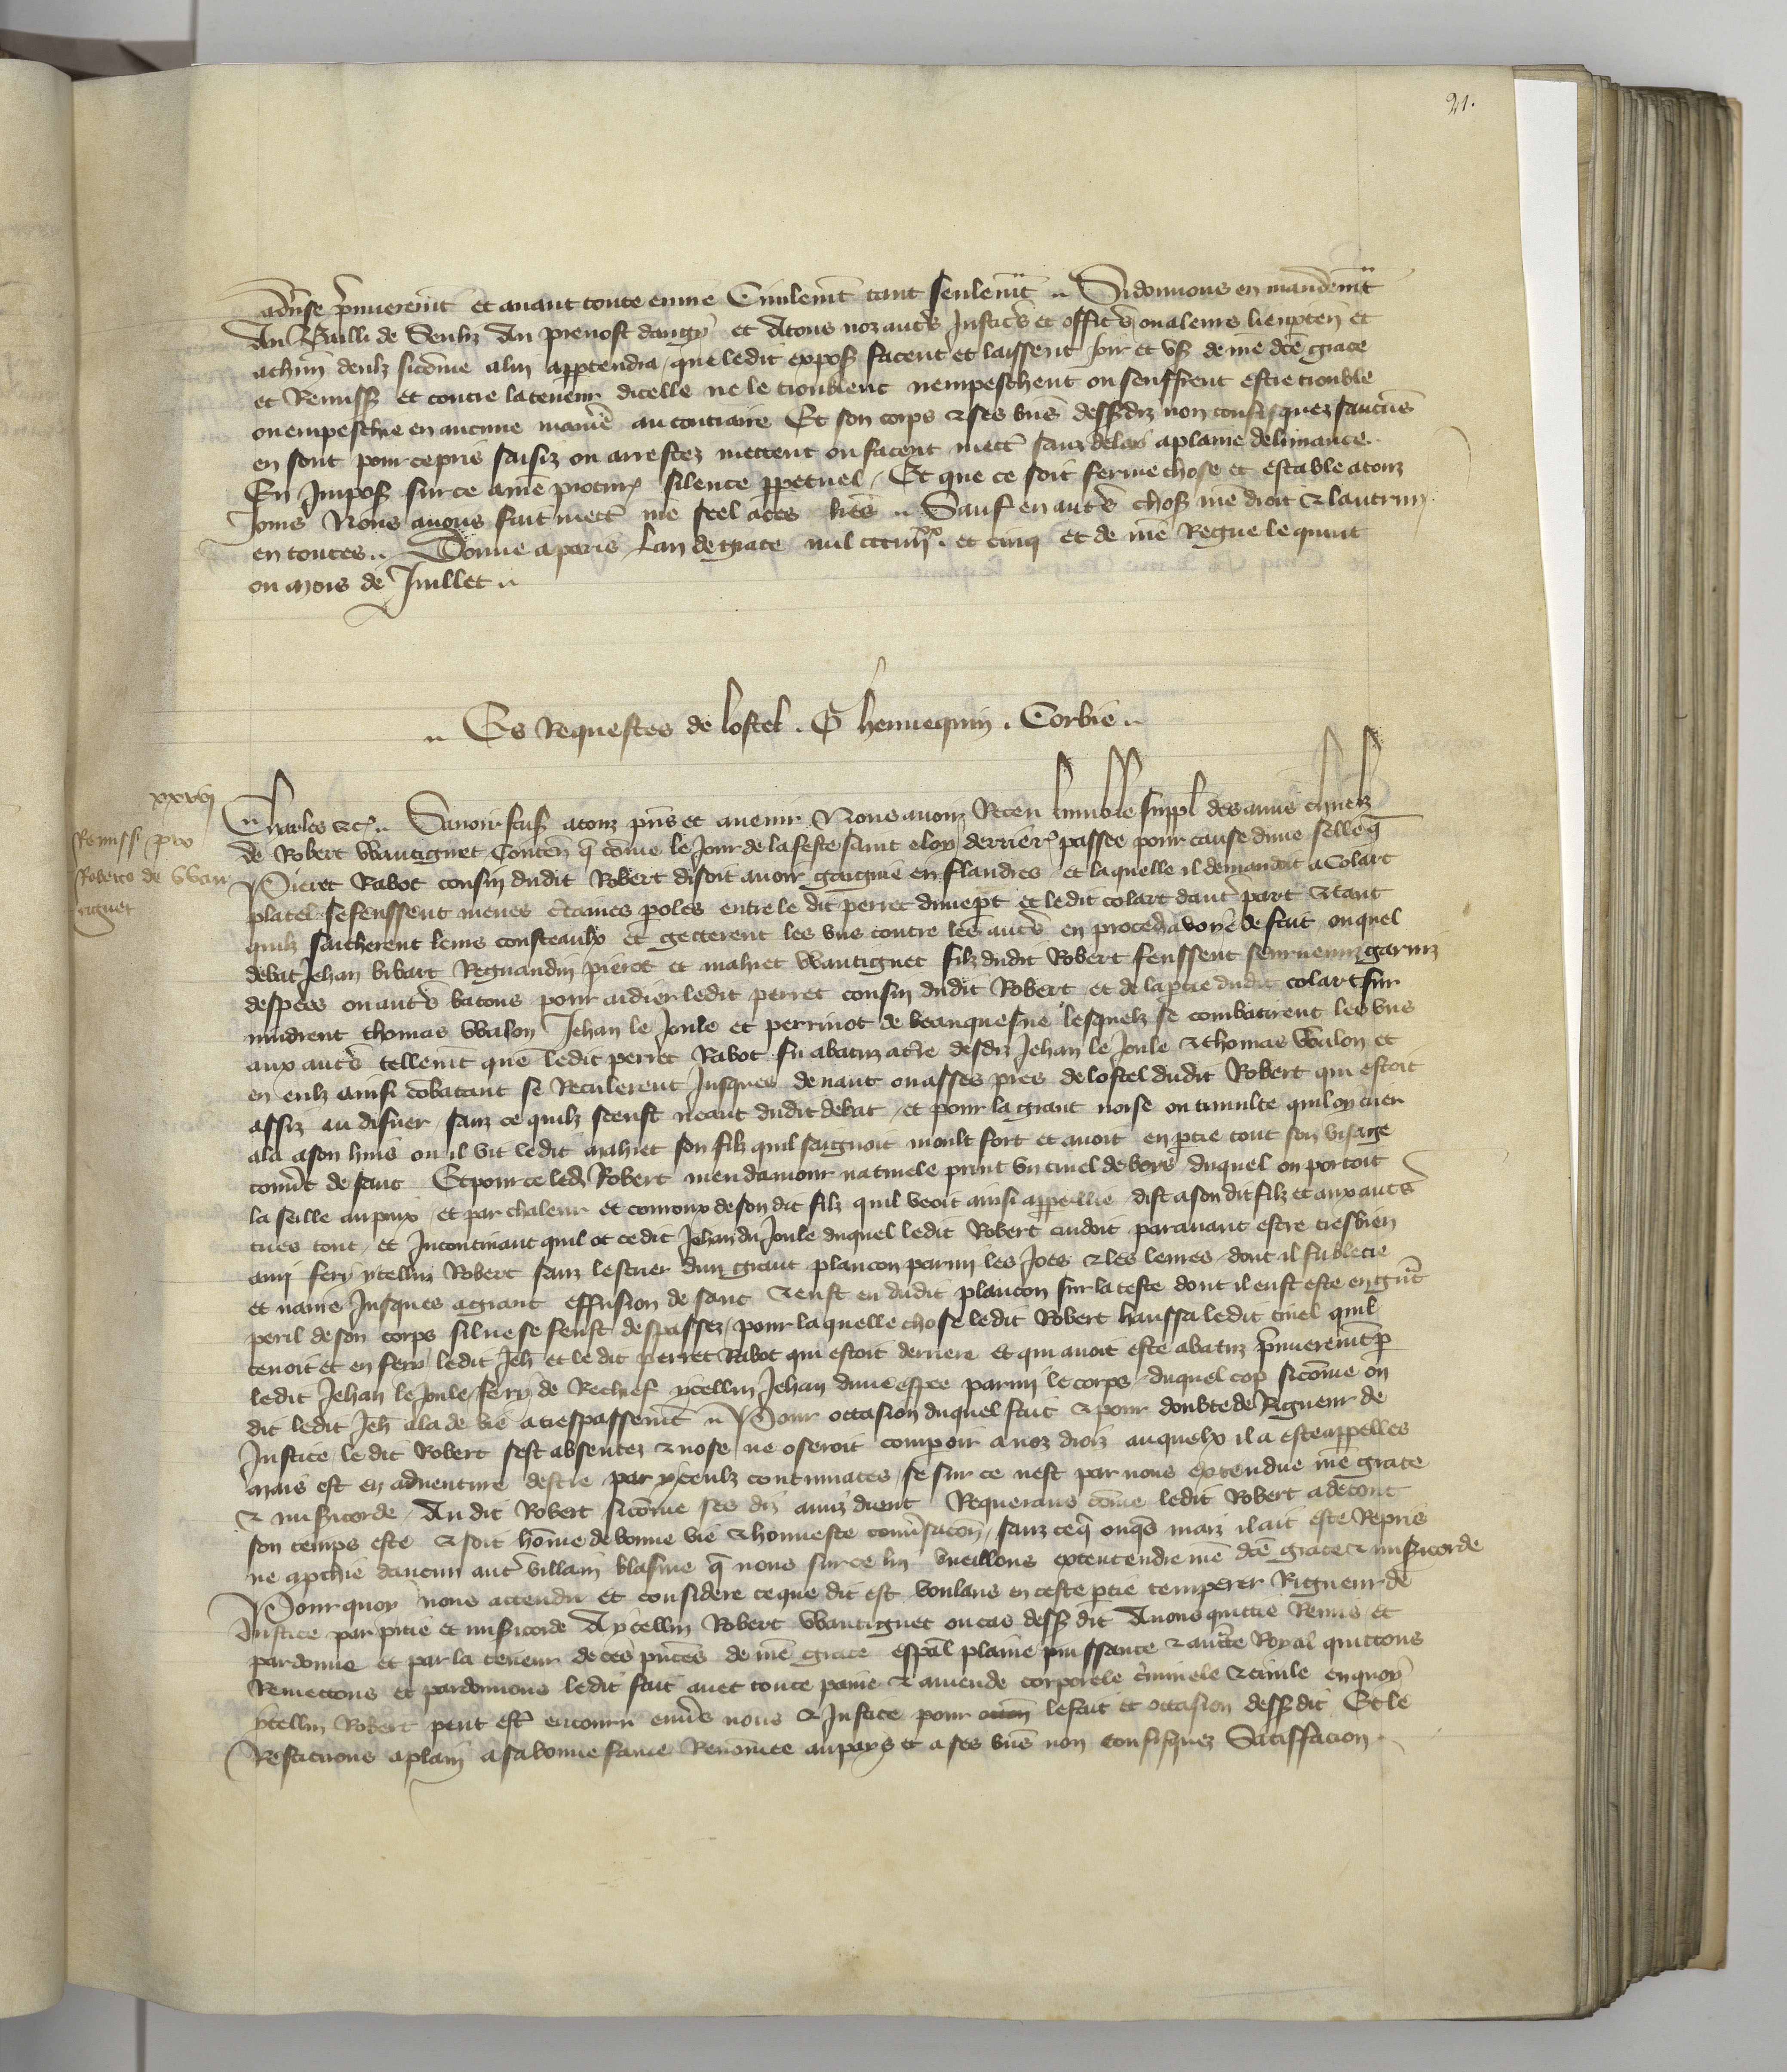 21.
adverse premierement et avant toute euvre Civilement tant seulement .. Si donnons en mandement
Au Bailli de Senliz Au prevost dangy et A tous noz autres Justiciers et officiers ou a leurs lieuxtenans et
a chacun deulz sicomme a lui appartendra que le dit exposant facent et laissent joir et user de nostre dicte grace
et Remission et contre la teneur dicelle ne le troublent nempeschent ou seuffrent estre trouble
ou empeschie en aucune maniere au contraire Et son corps & ses biens dessusdiz non confisquez saucuns
en sont pour ce pris saisiz ou arrestez mettent ou facent mettre sanz delay a plaine delivrance
En Imposant sur ce a nostre procureur silence perpetuel / Et que ce soit ferme chose et estable a touz
Jours Nous avons fait mettre nostre seel a ces lettres .. Sauf en autres choses nostre droit & lautrui
en toutes .. Donne a paris Lan de grace mil ccc iiiixx et cinq et de nostre Regne le quint
ou mois de Juillet ..
.. Es Requestes de lostel . P hennequin . Corbie ..
xxxvj
Remissio pro
Roberto de Wan
tignet
Charles &c. .. Savoir faisons a touz presens et avenir Nous avons Receu lumble supplication des amis charnelz
de Robert Wantignet Contenant que comme le Jour de la feste saint eloy derrierement passee pour cause dune selle que
Pieret Rabot cousin dudit Robert disoit avoir gaignie en flandres et la quelle il demandoit a Colart
platel se feussent meues certaines paroles entre le dit perret dune part et ledit colart dautre part & tant
quilz sacherent leurs cousteaulx et getterent les uns contre les autres en procedant a voye de fait ou quel
debat Jehan bibart Regnaudin pierot et mahiet Wantignet filz dudit Robert feussent seurvenuz garniz
despees ou autres batons pour aidier ledit perret cousin dudit Robert et de la partie dudit colart sur
vindrent thomas Walon Jehan le Joule et perrinot de beauquesne lesquelz se combatirent les uns
aux autres tellement que ledit perret Rabot fu abatuz a terre desdiz Jehan le Joule & thomas Walon et
en eulz ainsi combatant se Reculerent Jusques devant ou asses pres de lostel dudit Robert qui estoit
assiz au disner sanz ce quilz sceust neant dudit debat / et pour la grant noise ou tumulte quil oy crier
ala a son huis ou il vit ledit mahiet son filz quil saignoit moult fort et avoit en partie tout son visage
couvert de sanc Et pour ce ledit Robert meu damour naturele print un tinel de bois duquel on portoit
la seille au puix / et par chaleur et courroux de son dit filz quil veoit ainsi appareillie dist a son dit filz et aux autres
tues tout / et Incontinant quil ot ce dit Jehan du Joule duquel ledit Robert cuidoit paravant estre tresbien
ami fery ycellui Robert sanz le scuer dun grant plancon parmi les Joes & les levres dont il fu blecie
et navre Jusques a grant effusion de sanc & eust eu dudit plancon sur la teste dont il eust este en grant
peril de son corps sil ne se feust despassez / pour laquelle chose ledit Robert haussa ledit tinel quil
tenoit et en fery ledit Jehan et le dit perret Rabot qui estoit derriere et qui avoit este abatuz premierement par
ledit Jehan le Joule fery de Rechief ycellui Jehan dune espee parmi le corps duquel cop sicomme on
dit ledit Jehan ala de vie a trespassement .. Pour occasion duquel fait & pour doubte de Rigueur de
Justice le dit Robert sest absentez & nose ne oseroit comparoir a noz droiz auquelx il a este appelles
mais est en adventure destre par yceulz contumaces / se sur ce nest par nous extendue nostre grace
& misericorde Au dit Robert sicomme ses diz amis dient Requerans comme ledit Robert a de tout
son temps este & soit homme de bonne vie & honneste conversacion / sanz ce que onques mais il ait este Repris
ne aprehie daucun autre villain blasme que nous sur ce lui vueillons extentendre nostre dicte grace & misericorde
Pour quoy nous attendu et considere ce que dit est voulans en ceste partie temperer Rigueur de
Justice par pitie et misericorde A ycellui Robert Wantignet ou cas dessus dit Avons quittie Remis et
pardonne et par la teneur de ces presentes de nostre grace especial plaine puissance & auctorite Royal quittons
Remettons et pardonnons ledit fait avec toute paine & amende corporele criminele & civile en quoy
ycellui Robert peut estre encouru envers nous & Justice pour le fait et occasion dessusdit Et le
Restituons a plain a sa bonne fame Renommee au pays et a ses biens non confisquez Satisfacion